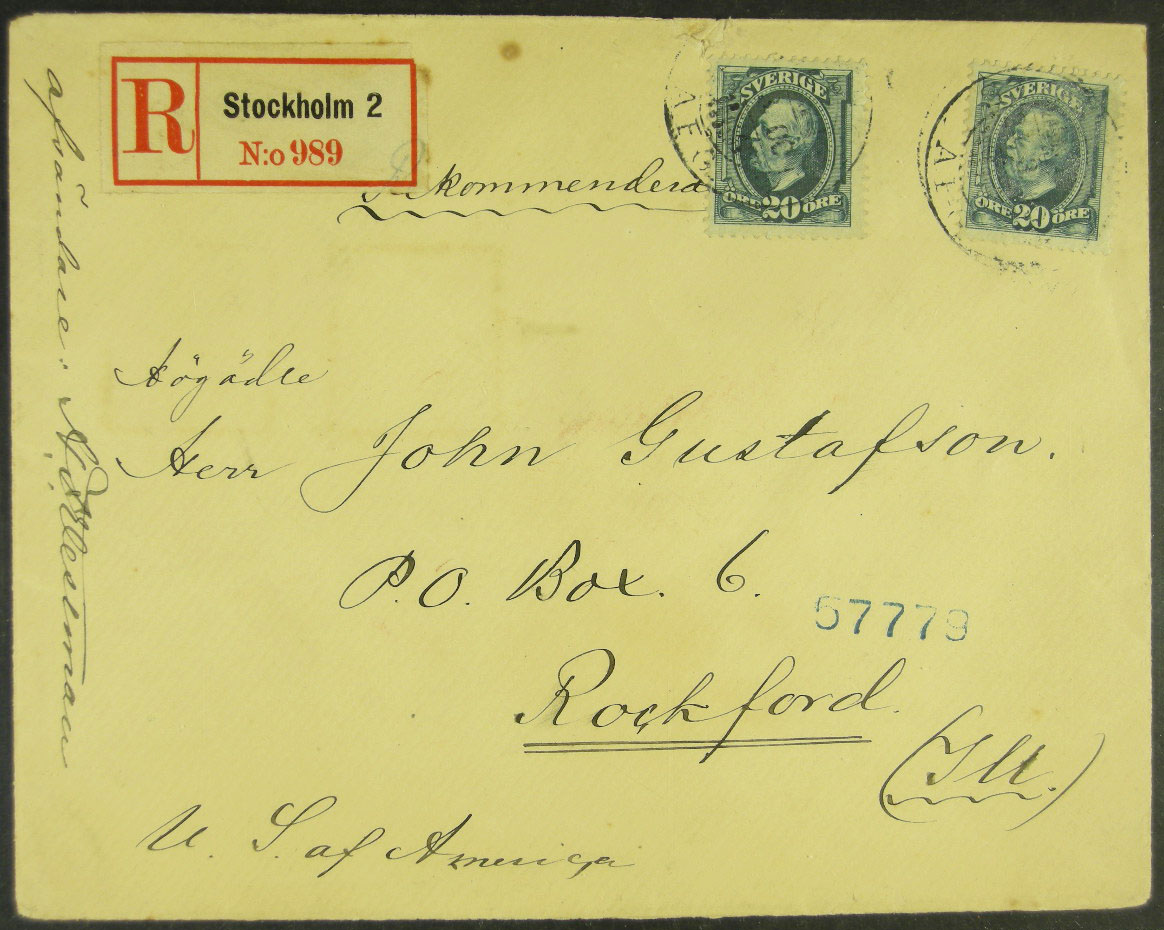 R Stockholm 2
N:o 989
Rekommenderas
SVERIGE
ÖRE 20 ÖRE
SVERIGE
ÖRE 20 ÖRE
Högädle
Herr John Gustafson.
P.O. Box. 6.
57779
Rockford.
(Ill.)
U. S. af America
afsändare: